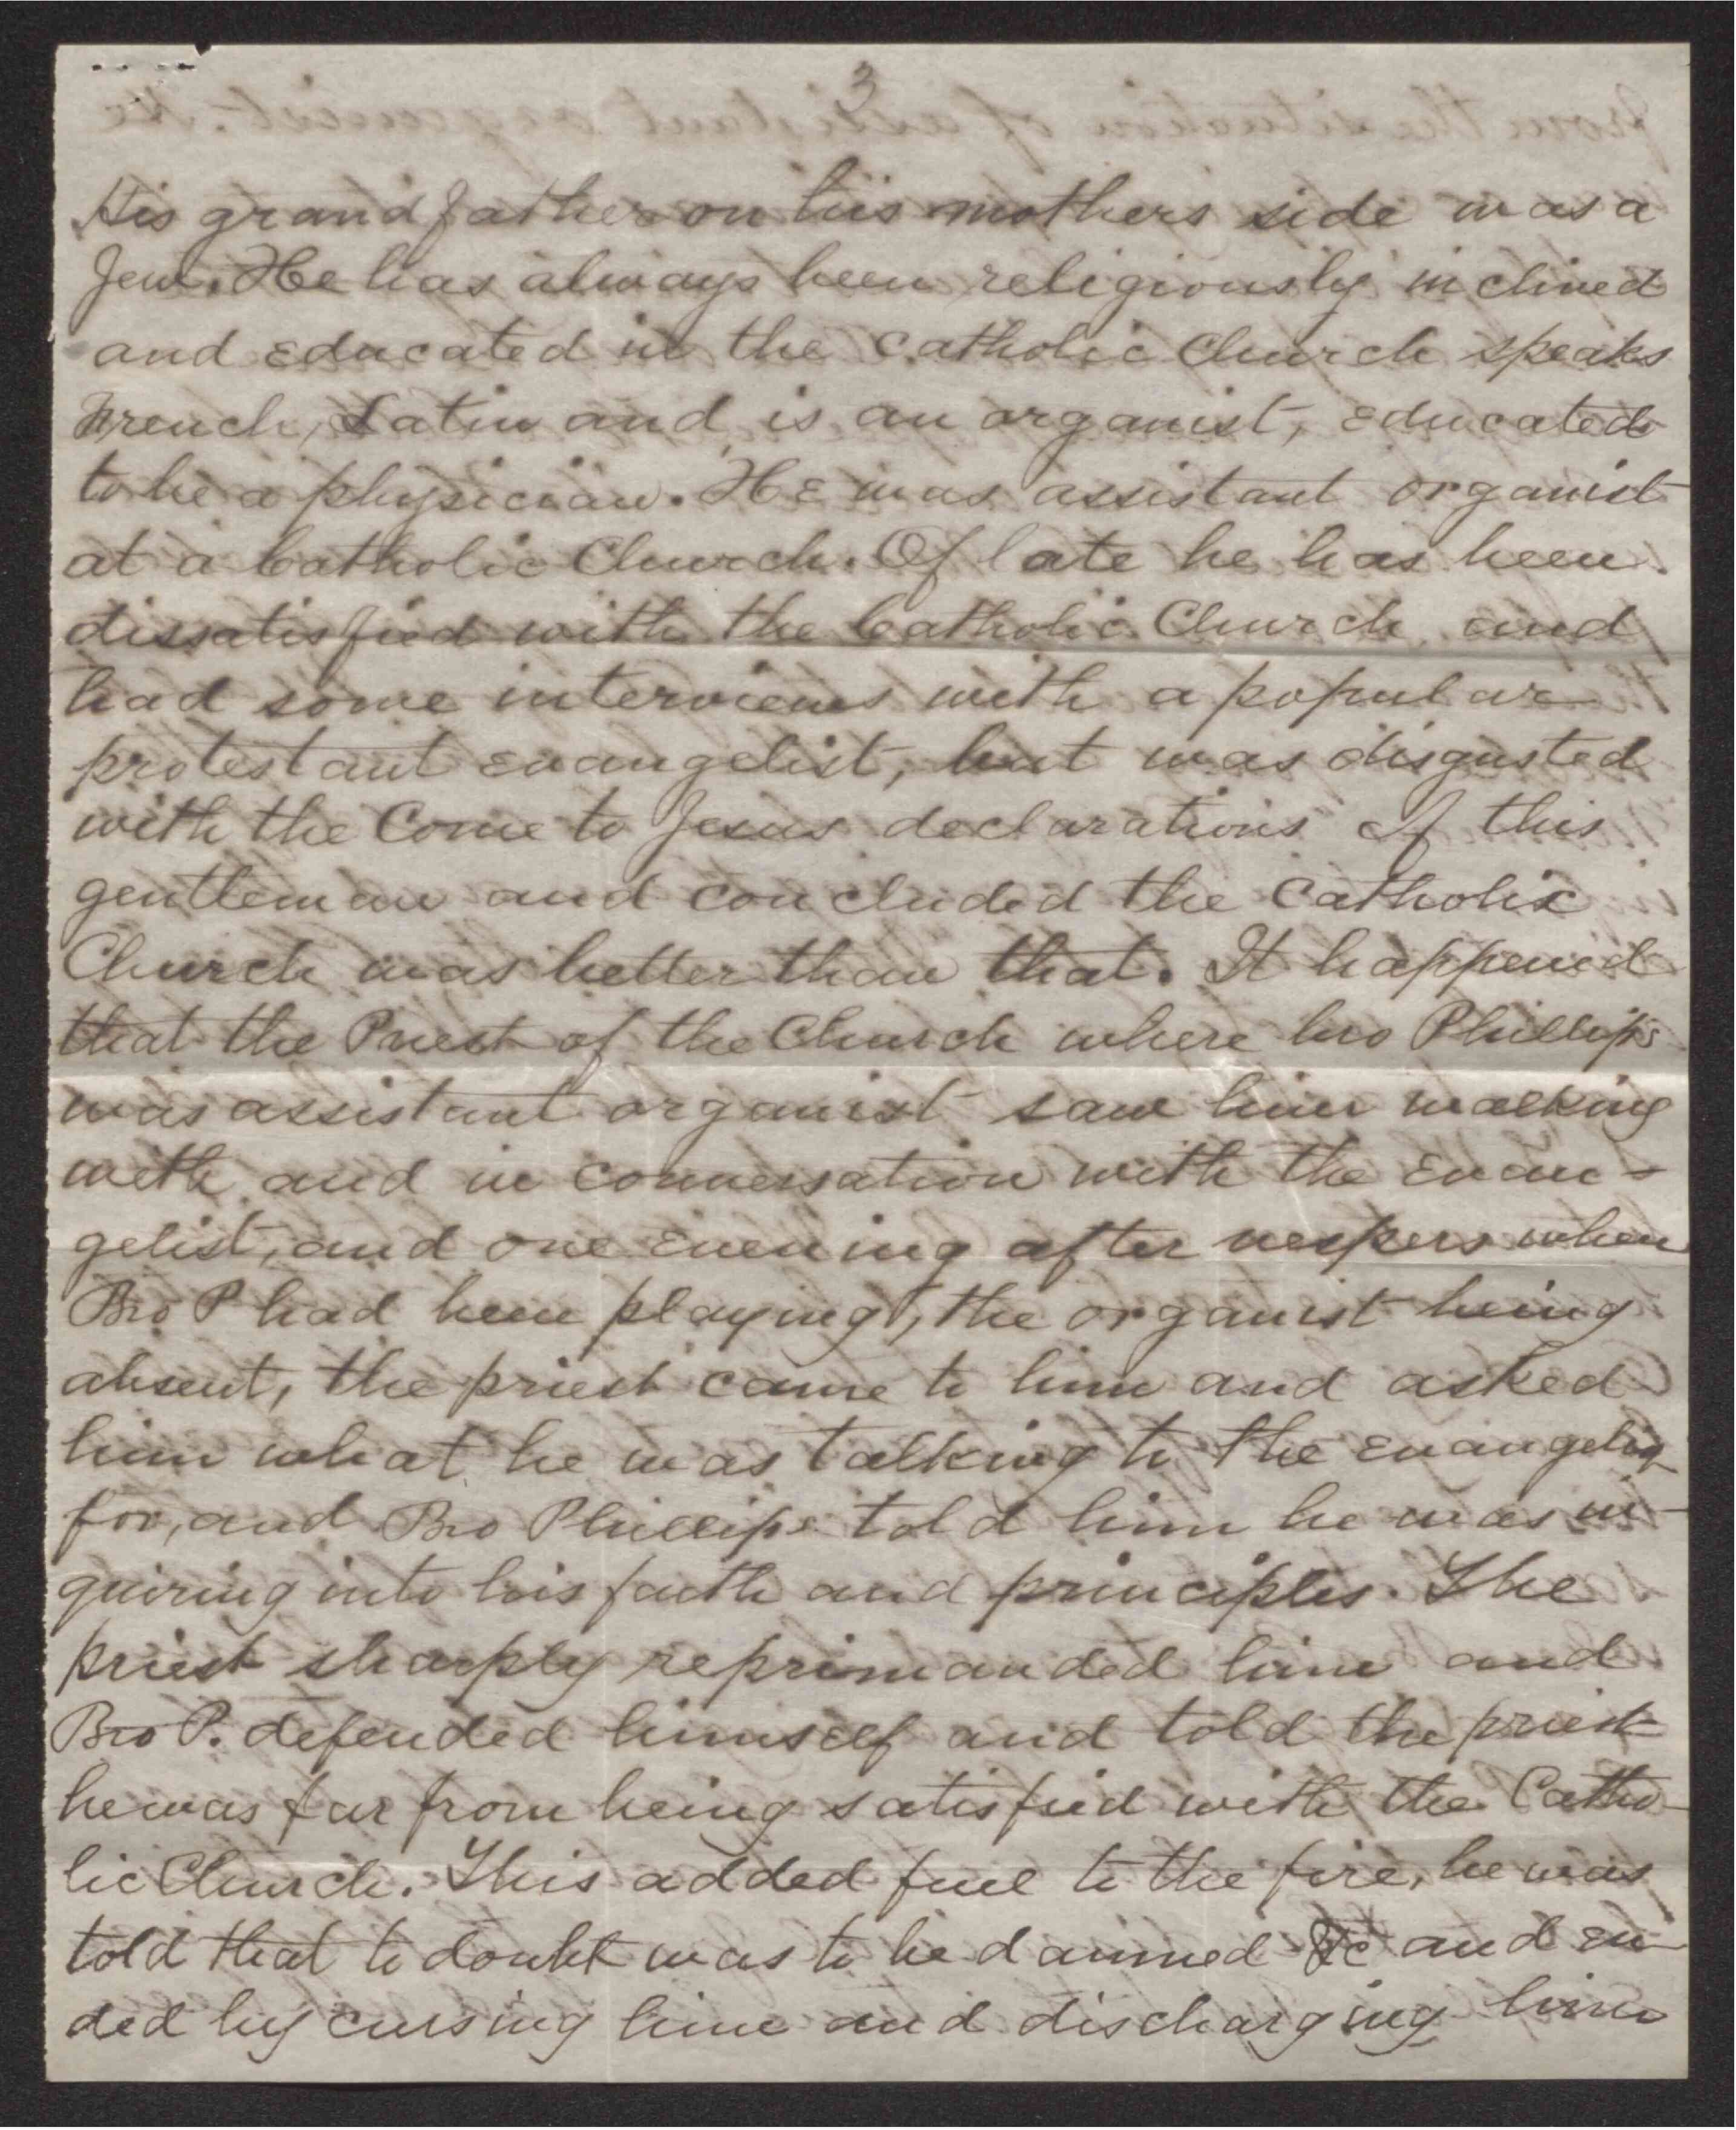 3
His grandfather on his mothers side was a
Jew. He has always been religiously inclined
and educated in the Catholic Church speaks
French, Latin and is an organist, educated
to be a physician. He was assistant organist
at a Catholic Church. Of late he has been
dissatisfied with the Catholic Church and
had some interviews with a popular
protestant evangelist, but was disgusted
with the Come to Jesus declarations of this
gentleman and concluded the Catholic
Church was better than that. It happened
that the Priest of the Church where bro Phillips
was assistant organist saw him walking
with and in conversation with the evan-
gelist, and one evening after vespers when
Bro P had been playing, the organist being
absent, the priest came to him and asked
him what he was talking to the evangelist
for, and Bro Phillips told him he was in-
quiring into his faith and principles. The
priest sharply reprimanded him and
Bro P. defended himself and told the priest
he was far from being satisfied with the Catho-
lic Church. This added fuel to the fire, he was
told that to doubt was to be damned &c and en-
ded by cursing him and discharging him